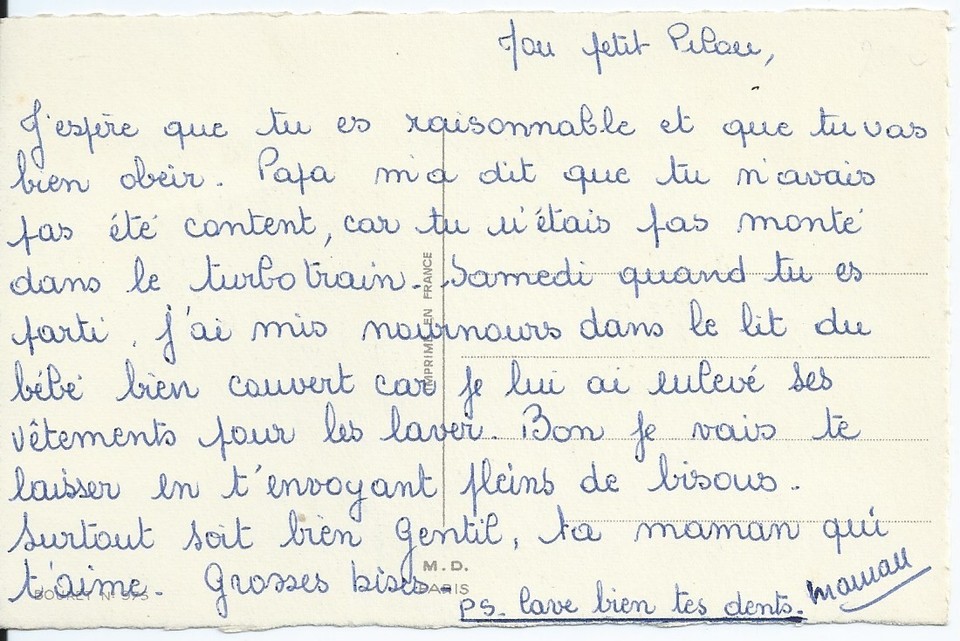 Mon petit Pilou,
J'espère que tu es raisonnable et que tu vas
bien obéir. Papa m'a dit que tu n'avais
pas été content, car tu n'étais pas monté
dans le turbotrain. Samedi quand tu es
parti, j'ai mis nounours dans le lit du
bébé bien couvert car je lui ai enlevé ses
vêtements pour les laver. Bon je vais te
laisser en t'envoyant pleins de bisous.
Surtout soit bien Gentil, ta maman qui
t'aime. Grosses bises.
maman
PS. lave bien tes dents.
IMPRIMÉ EN FRANCE
M.D.
PARIS